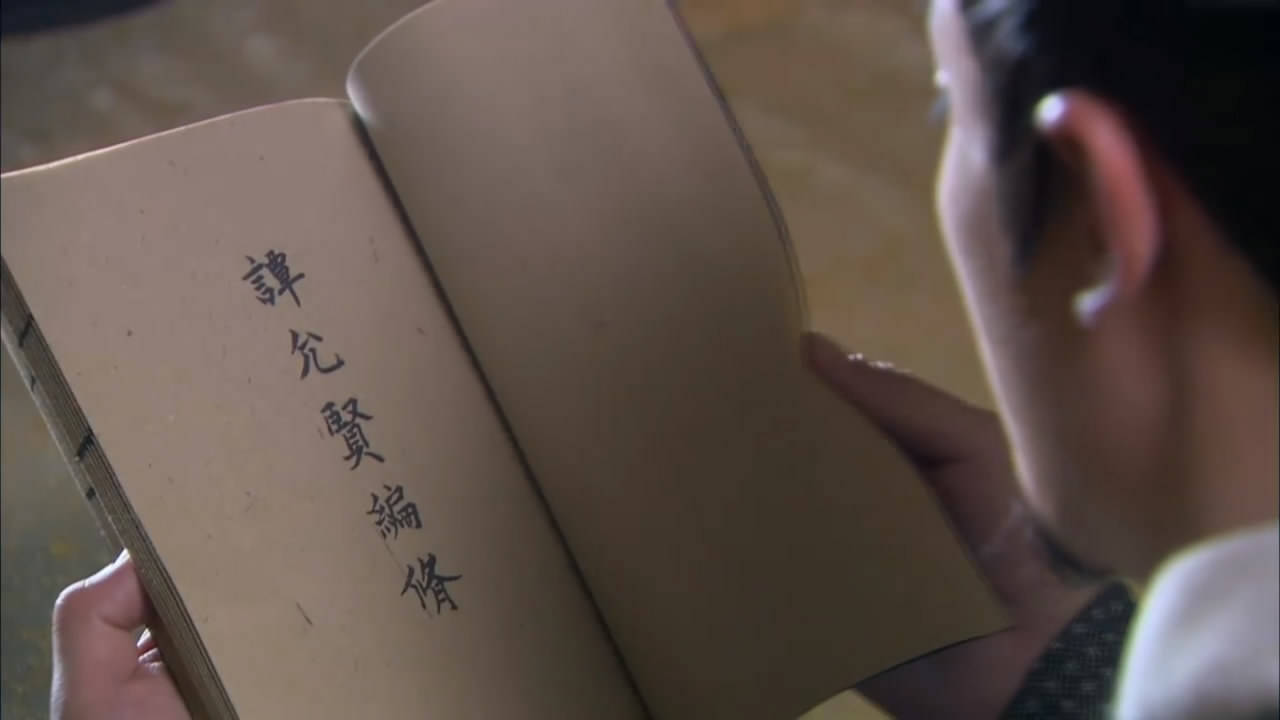 譚允賢編脩